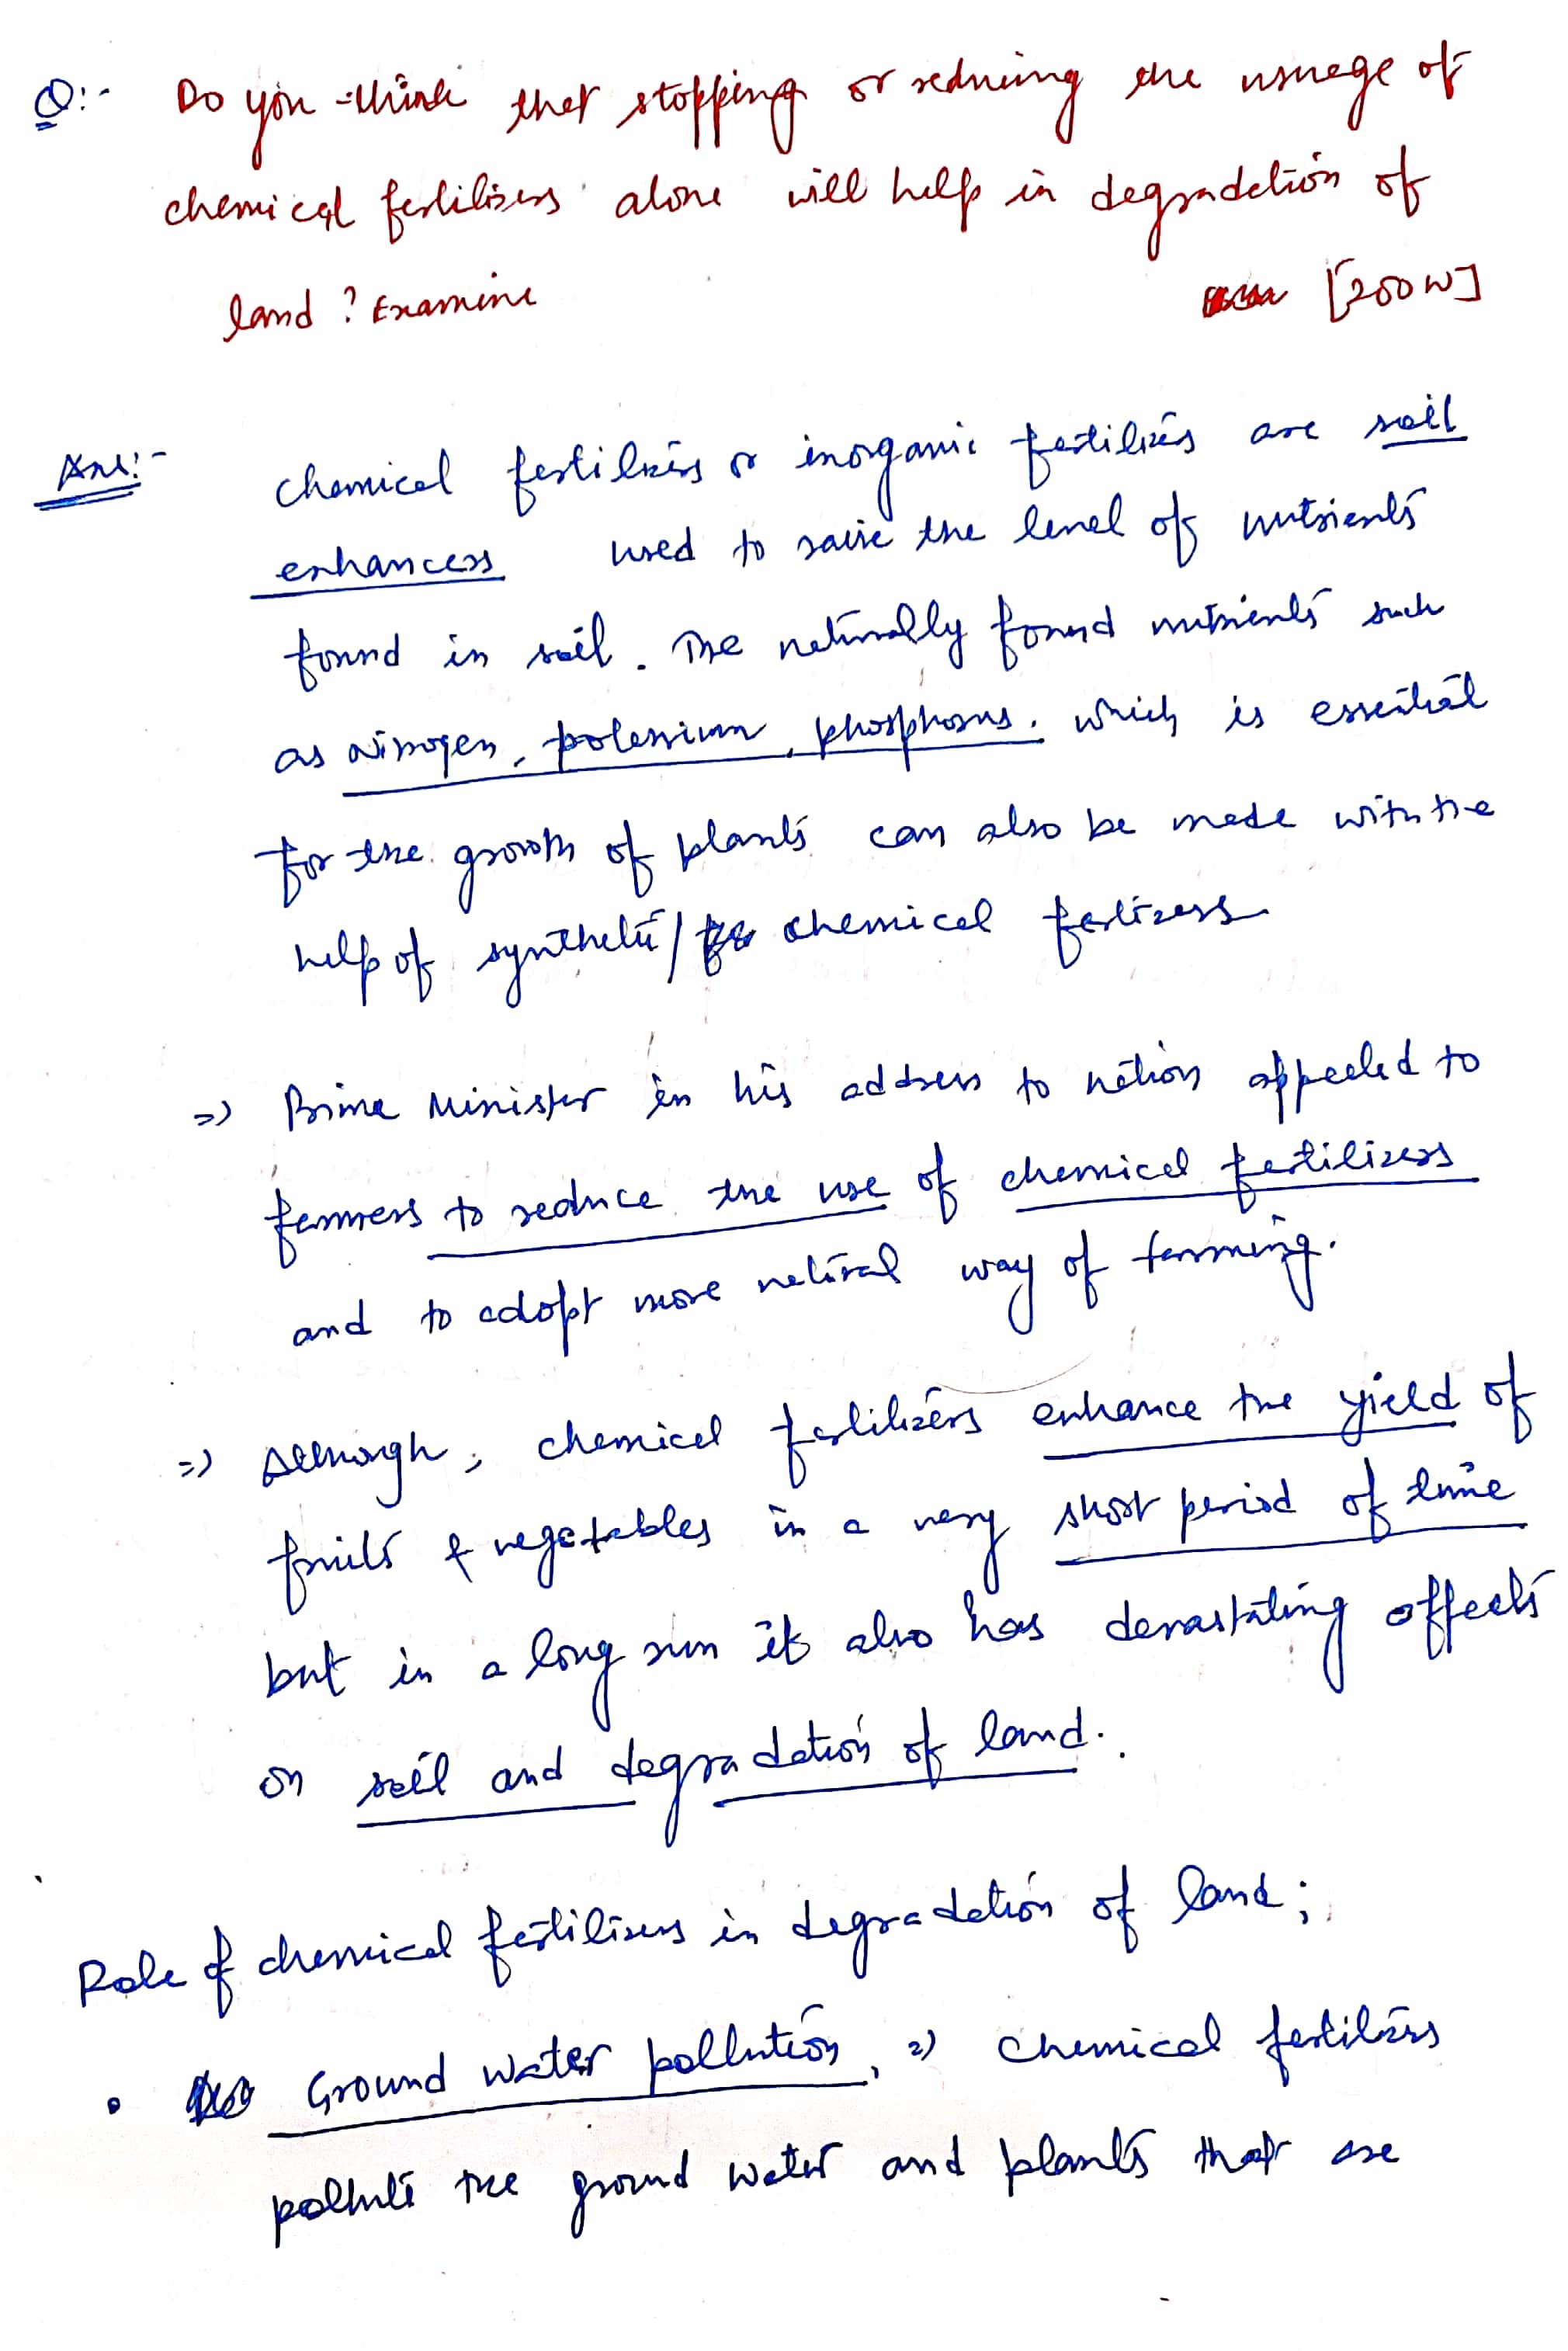 Q:- Do you think that stopping or reducing the usuage of
chemical fertilisers alone will help in degradation of
land? Examine [200W]
Ans:- Chemical fertilizers or inorganic fertilizers are soil
enhancers used to raise the level of nutrients
found in soil. The naturally found nutrients such
as Nitrogen, potassium, phosphorus. which is essential
for the growth of plants can also be made with the
help of synthetic/ chemical fertizers
=> Prime Minister in his address to nation appealed to
farmers to reduce the use of chemical fertilizers
and to adopt more natural way of farming.
=> Although, chemical fertilizers enhance the yield of
fruits & vegetables in a very short period of time
but in a long run it also has devastating effects
on soil and degradation of land.
Role of chemical fertilisers in degradation of land;
• Ground water pollution, => Chemical fertilizers
pollute the ground water and plants that are